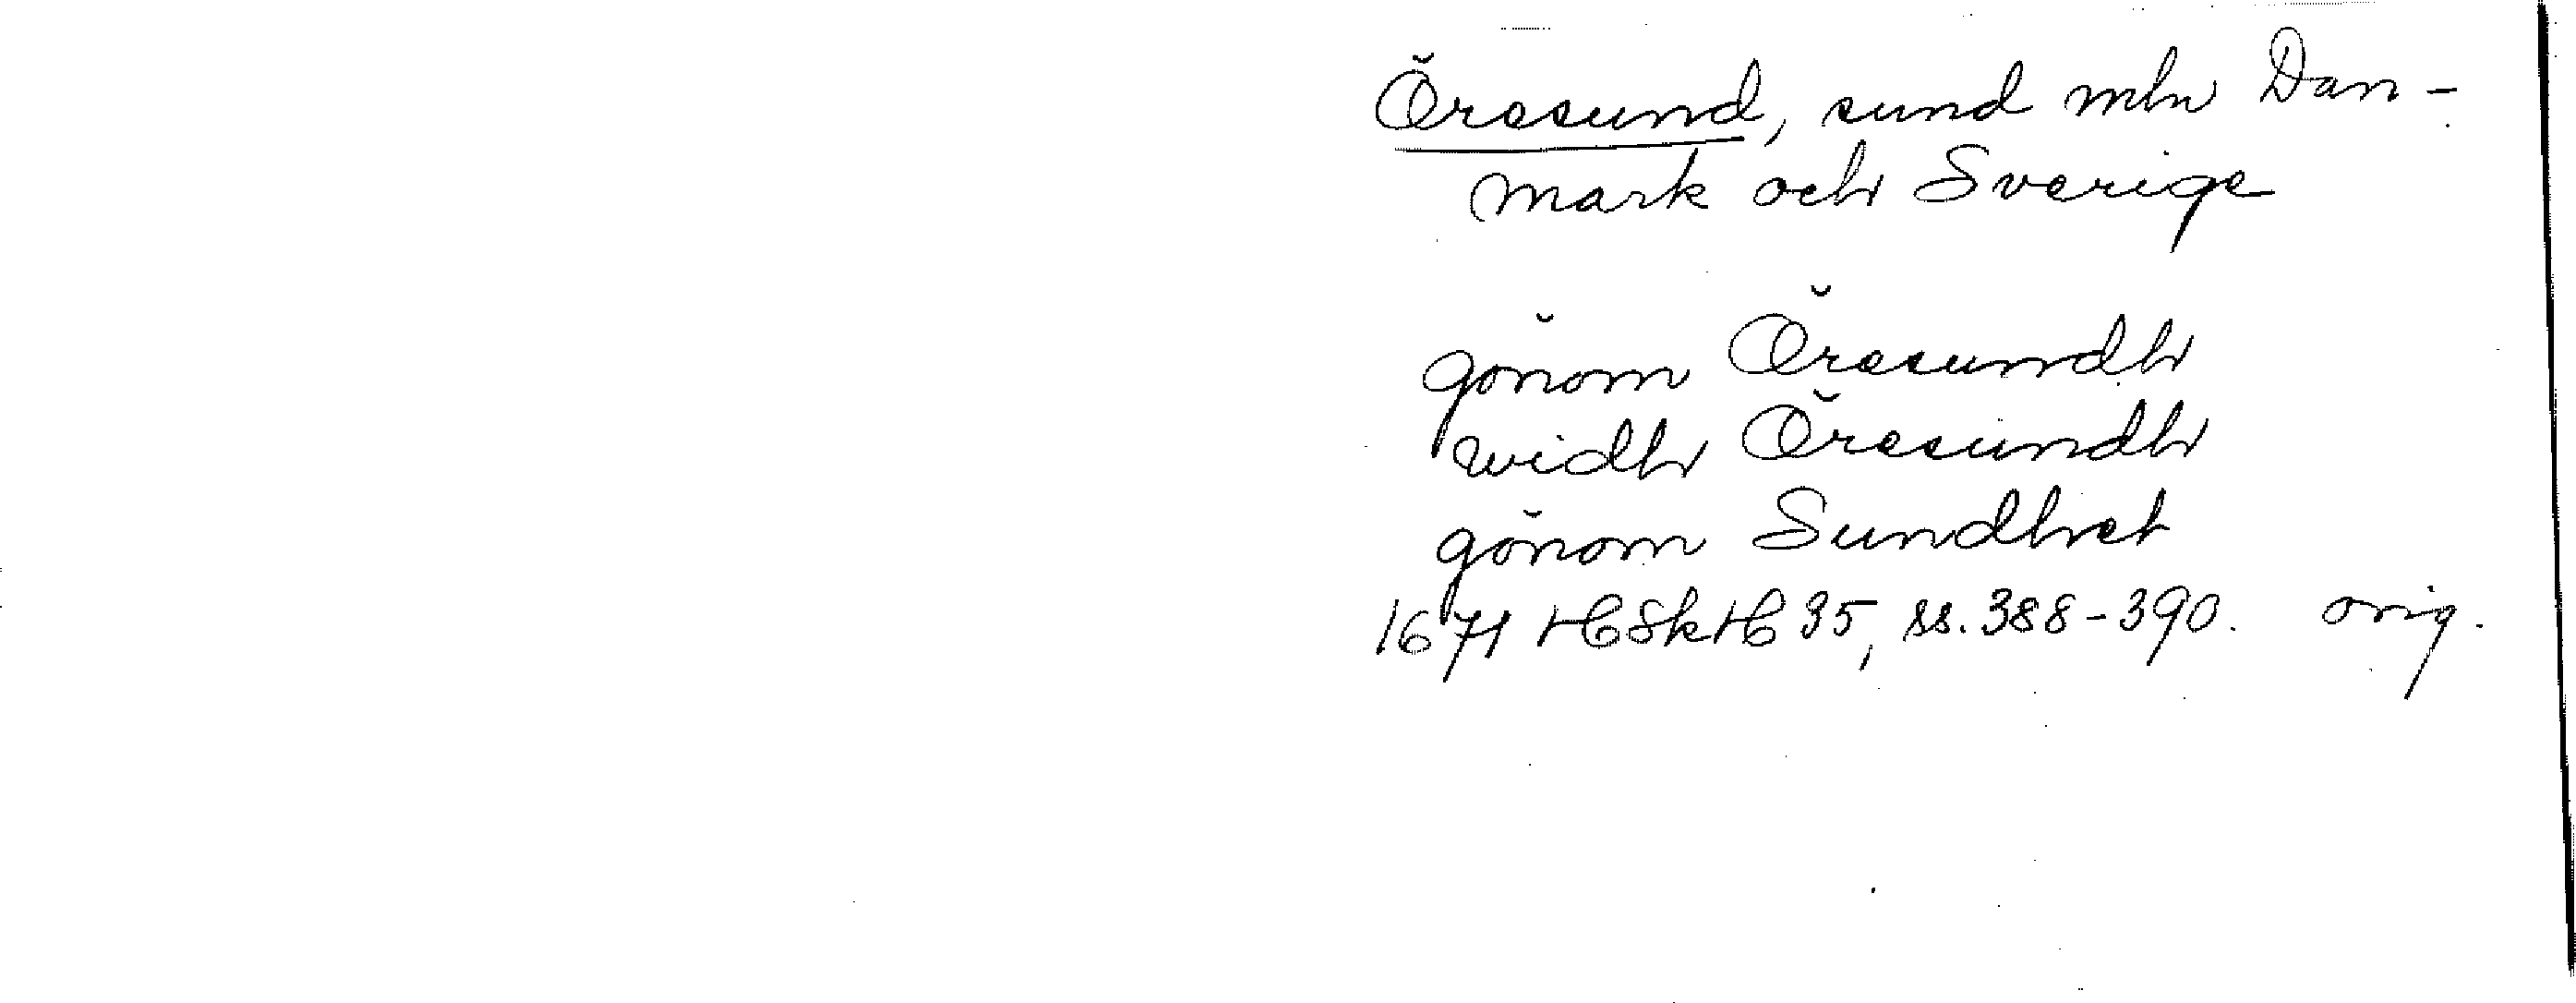 Öresund, sund mln Dan-
mark och Sverige
gönom Öresundh
widh Öresundh
gönom Sundhet
1671 HSkH 35, ss. 388-390. orig.